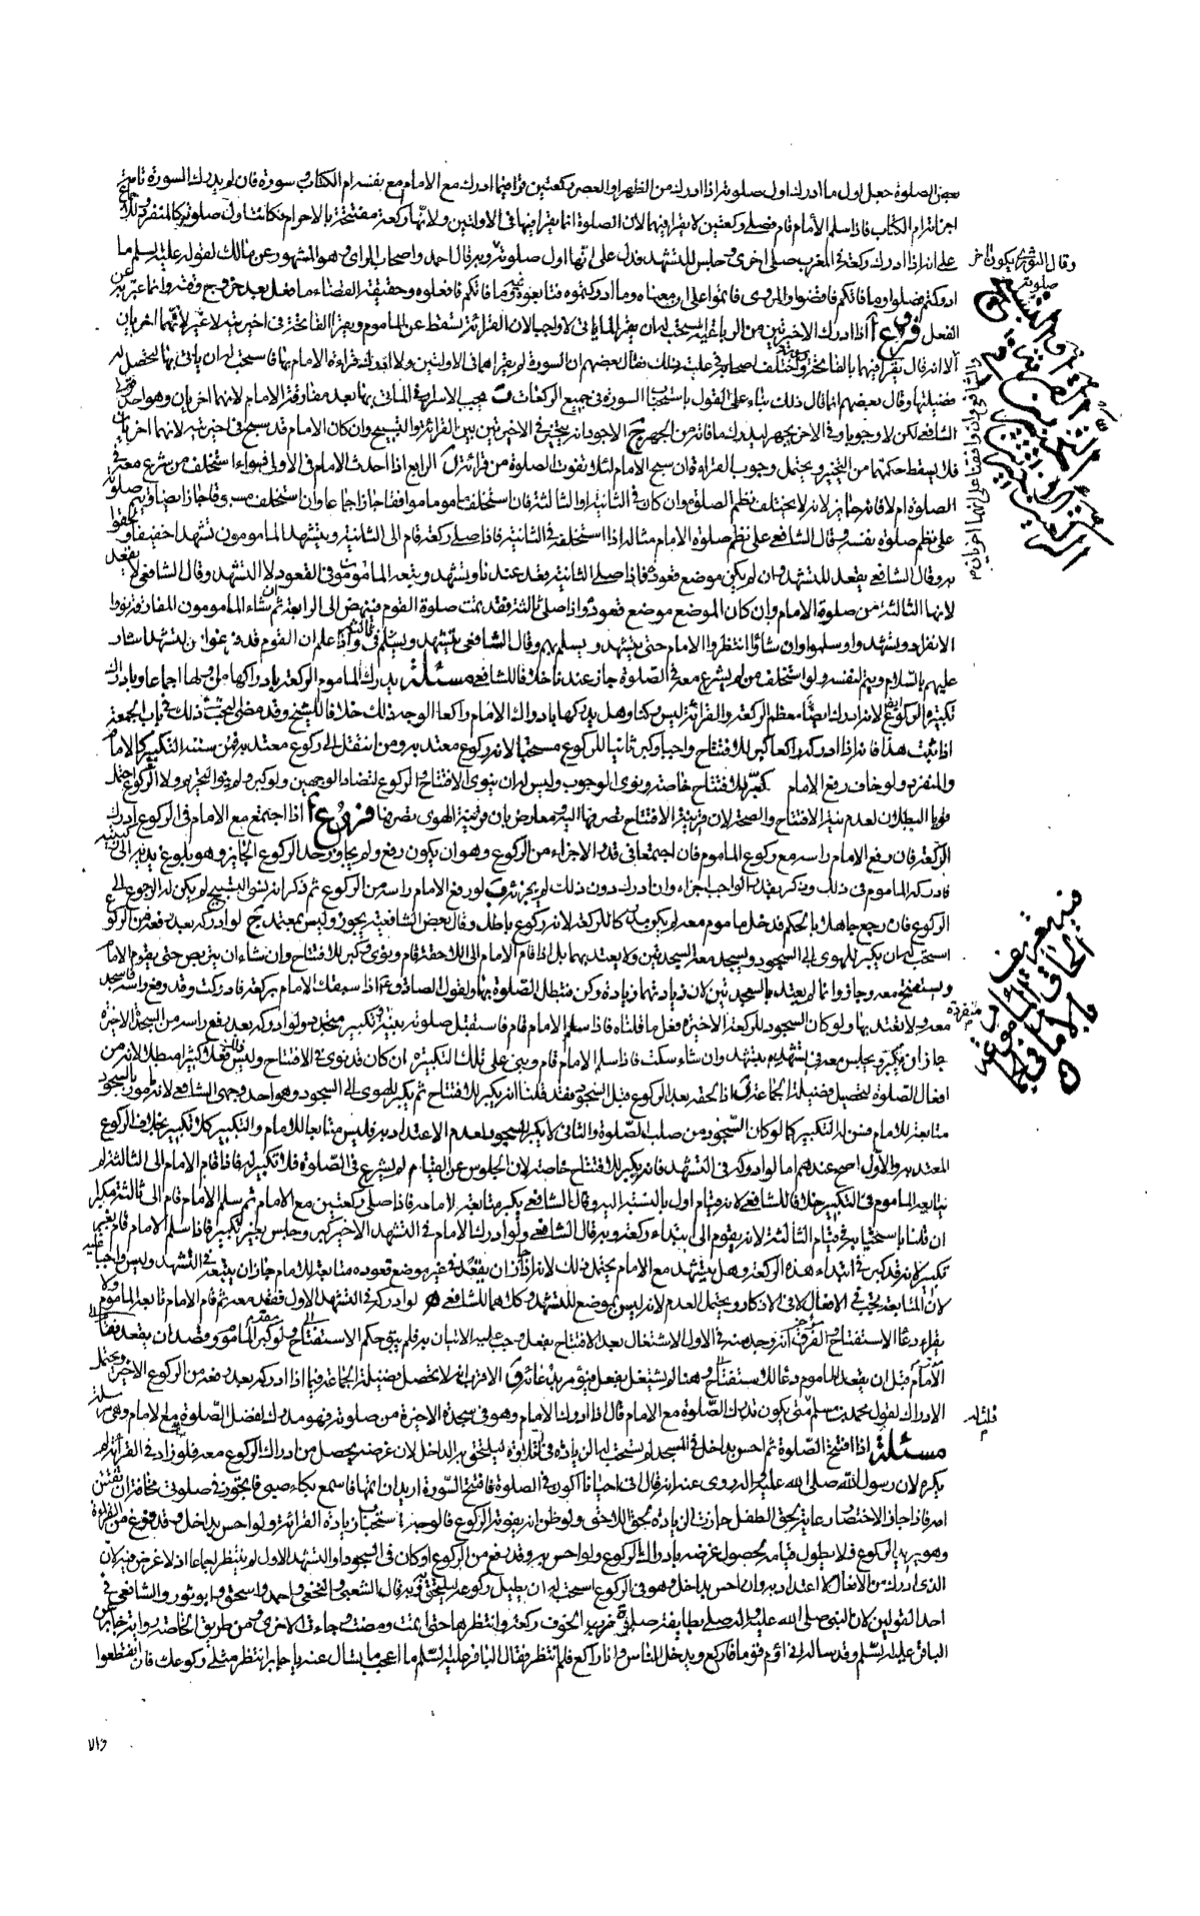 بعض الصلوة جعل اول ما ادرك اول صلوته فاذا ادرك من الظهر او العصر ركعتين قرأ فيما ادرك مع الامام مع نفسه ام الكتاب وسورة فان لم يدرك السورة تامة
اجزأته ام الكتاب فاذا سلم الامام قام فصلى ركعتين لا يقرأ فيهما لان الصلوة انما يقرأ فيها في الاولتين ولانها ركعة مفتتحة بالاحرام فكانت اول صلوته كالمنفرد
على انه اذا ادرك ركعة في المغرب صلى اخرى وجلس للتشهد فدل على انها اول صلوته وبه قال احمد واصحاب الراي وهو المشهور عن مالك لقوله عليه السلم ما
ادركتم فصلوا وما فاتكم فاقضوا والمروي فاتموا على ان معناه وما ادركتموه فتابعوه فيه وما فاتكم فافعلوه وحقيقة القضاء ما فعل بعد خروج وقته وانما عبر به عن
الفعل فروع أ اذا ادرك الاخيرتين من الرباعية يستحب له ان يقرأ لما ياتي لا واجبا لان القرائة يسقط عن الماموم ويقرأ الفاتحة في اخيرتيه لا غير لانهما اخريان
الا انه قال يقرأ فيهما بالفاتحة واختلف اصحابه في علة ذلك فقال بعضهم ان السورة لم يقرأها في الاولتين ولا ادرك قراءة الامام بها فاستحب له ان ياتي بها لتحصل له
فضيلتها وقال بعضهم انما قال ذلك بناء على القول باستحباب السورة في جميع الركعات ب يجب الاسرار في الماتي بها بعد مفارقة الامام لانها اخريان وهو احد قولي
الشافعي لكن لا وجوبا وفي الاخر يجهر ليدرك ما فاته من الجهر ج الاجود انه يتخير في الاخيرتين بين القرائة والتسبيح وان كان الامام قد سبح في اخيرتيه لانها اخريان
فلا يسقط حكمها من التخيير ويحتمل وجوب القراءة ان سبح الامام لئلا تفوت الصلوة من قرائة د الرابع اذا احدث الامام في الاولى فسواء استخلف من شرع معه في
الصلوة ام لا فانه جايز لانه لا يختلف نظم الصلوة وان كان في الثانية او الثالثة فان استخلف ماموما موافقا جاز اجماعا وان استخلف مسبوقا جاز ايضا ويتم صلوته
على نظم صلوة نفسه وقال الشافعي على نظم صلوة الامام مثاله اذا استخلفه في الثانية فاذا صلى ركعة قام الى الثانية ويتشهد المامومون تشهدا خفيفا ويلحقوا
به وقال الشافعي يقعد للتشهد وان لم يكن موضع قعوده فاذا صلى الثانية وقعد عندنا ويتشهد ويتبعه المامومون في القعود لا التشهد وقال الشافعي لا يقعد
لانها الثالثة من صلوة الامام وان كان الموضع موضع قعوده واذا صلى الثالثة فقد تمت صلوة القوم فينهض الى الرابعة ثم ان شاء المامومون المفارقة نووا
الانفراد ويتشهد واو سلموا وان شاؤا انتظروا الامام حتى يتشهد ويسلم بهم وقال الشافعي يتشهد ويسلم في ثالثته واذا علم ان القوم قد فرغوا من التشهد اشار
عليهم بالسلام ويتم لنفسه ولو استخلف من لم يشرع معه في الصلوة جاز عندنا خلافا للشافعي مسئلة يدرك الماموم الركعة بادراكها من اولها اجماعا وبادراك
تكبيرة الركوع لانه ادرك ايضا معظم الركعة والقرائة ليس ركنا وهل يدركها بادراك الامام راكعا الوجه ذلك خلافا للشيخ وقد مضى البحث في ذلك في باب الجمعة
اذا ثبت هذا فانه اذا ادركه راكعا كبر للافتتاح واجبا وكبر ثانيا للركوع مستحبا لانه ركوع معتد به ومن انتقل الى ركوع معتد به فمن سنته التكبير كالامام
والمنفرد ولو خاف رفع الامام كبر للافتتاح خاصة ونوى الوجوب وليس له ان ينوي الافتتاح والركوع لتضاد الوجهين ولو كبر ولم ينو التحريمة ولا الركوع احتمل
قويا البطلان لعدم نية الافتتاح والصحة لان قرينة الافتتاح تصرفها اليه ومعارض بان قرينة الهوى تصرفها فروع أ اذا اجتمع مع الامام في الركوع ادرك
الركعة فان رفع الامام راسه مع ركوع الماموم فان اجتمعا في قدر الاجزاء من الركوع وهو ان يكون رفع ولم يجاوز حد الركوع الجايز وهو بلوغ يديه الى ركبتيه
فادركه الماموم في ذلك وذكر بقدر الواجب اجزاه وان ادرك دون ذلك لم يجزئه ب لو رفع الامام راسه من الركوع ثم ذكر انه نسى التسبيح لم يكن له الرجوع الى
الركوع فان رجع جاهلا بالحكم فدخل ماموم معه لم يكن مدركا للركعة لانه ركوع باطل وقال بعض الشافعية يجوز وليس بمعتمد ج لو ادركه بعد رفعه من الركوع
استحب له ان يكبر للهوى الى السجود ويسجد معه السجدتين ولا يعتد بهما بل اذا قام الامام الى اللاحقة قام ونوى وكبر للافتتاح وان شاء ان يتربص حتى يقوم الامام
ويستفتح معه وجاز وانما لم يعتد بالسجدتين لان زيادتهما زيادة ركن فتبطل الصلوة بها ولقول الصادق ع اذا سبقك الامام بركعة فادركت وقد رفع راسه فاسجد
معه ولا تعتد بها ولو كان السجود للركعة الاخيرة فعل ما قلناه فاذا سلم الامام قام فاستقبل صلوته بنية وتكبير متجدد ولو ادركه بعد رفع راسه من السجدة الاخيرة
جاز ان يكبر ويجلس معه في تشهده يتشهد وان شاء سكت فاذا سلم الامام قام وبنى على تلك التكبيرة ان كان قد نوى في الافتتاح وليس فعلا كثيرا مبطلا لانه من
افعال الصلوة لتحصيل فضيلة الجماعة د اذا لحقه بعد الركوع قبل السجود فقد قلنا انه يكبر للافتتاح ثم يكبر للهوى الى السجود وهو احد وجهي الشافعي لانه مامور بالسجود
متابعة للامام فسن له التكبير كما لو كان السجود من صلب الصلوة والثاني لا يكبر للسجود لعدم الاعتداد به فليس متابعا للامام والتكبير كلا تكبير بخلاف الركوع
المعتد به والاول اصح عندهم اما لو ادركه في التشهد فانه يكبر للافتتاح خاصة لان الجلوس عن القيام لم يشرع في الصلوة فلا تكبير له فاذا قام الامام الى الثالثة لم
يتابعه الماموم في التكبير خلافا للشافعي لانه قيام اول بالنسبة اليه وقال الشافعي يكبر متابعة لامامه فاذا صلى ركعتين مع الامام ثم سلم الامام قام الى ثالثته مكبرا
ان قلنا باستحبابه في قيام الثالثة لانه يقوم الى ابتداء ركعة وبه قال الشافعي ولو ادرك الامام في التشهد الاخير كبر وجلس بغير تكبير فاذا سلم الامام قام بغير
تكبير لانه قد كبر في ابتداء هذه الركعة وهل يتشهد مع الامام يحتمل ذلك لانه اذا جاز ان يقعد في غير موضع قعوده متابعة للامام جاز ان يتبعه في التشهد وليس واجبا عليه
لان المتابعة يجب في الافعال لا في الاذكار ويحتمل العدم لانه ليس بموضع للتشهد وكلاهما للشافعي ه لو ادركه في التشهد الاول فقعد معه ثم قام الامام تابعه الماموم ولا
يقرء دعاء الاستفتاح الفرق انه وجد منه في الاول الاشتغال بعد الافتتاح بفعل وجب عليه الاتيان به فلم يبق حكم الاستفتاح ولو كبر الماموم وقصد ان يقعد فقام
الامام قبل ان يقعد الماموم دعا للاستفتاح وهنا لم يشتغل بفعل الاقرب انه لا تحصل فضيلة الجماعة فيما اذا ادركه بعد رفعه من الركوع الاخير ويحتمل
الادراك لقول محمد بن مسلم متى يكون تدرك الصلوة مع الامام قال اذا ادرك الامام وهو في سجدة الاخيرة من صلوته فهو مدرك لفضل الصلوة مع الامام
مسئلة اذا افتتح الصلوة ثم احس بداخل في المسجد لم يستحب له الزيادة في التلاوة ليلتحق به الداخل لان غرضه يحصل من ادراك الركوع معه فلو زاد في القرائة لم
يكره لان رسول الله صلى الله عليه وآله روى عنه انه قال انى احيانا اكون في الصلوة فافتتح السورة اريد ان اتمها فاسمع بكاء صبي فاتجوز في صلوتي مخافة ان تفتتن
امه فاذا جاز الاختصار رعاية لحق الطفل جازت الزيادة لحق اللاحق ولو ظن انه يفوته الركوع فالوجه استحباب زيادة القرائة ولو احس بداخل وقد فرغ من القراءة
وهو يريد الركوع فلا يطول قيامه لحصول غرضه بادراك الركوع ولو احس به وقد رفع من الركوع او كان في السجود او التشهد الاول لم ينتظر اجماعا اذ لا غرض فيه لان
الذي ادركه من الافعال لا اعتداد به وان احس بداخل وهو في الركوع استحب له ان يطيل ركوعه ليلتحق به وبه قال الشعبي والنخعي واحمد واسحق وابو ثور والشافعي في
احد القولين لان النبي صلى الله عليه وآله صلى بطايفة صلوة الخوف ركعة وانتظرها حتى اتمت ومضت وجاءت الاخرى ومن طريق الخاصة رواية جابر عن
الباقر عليه السلم وقد ساله انى اؤم قوما فاركع ويدخل الناس وانا راكع فكم انتظر فقال الباقر عليه السلم ما اعجب ما يسال عنه يا جابر انتظر مثلي ركوعك فان انقطعوا
وقال الثوري يكون آخر صلوته
والشافعي وان وافقنا على انهما اخريان
منفردة
والا